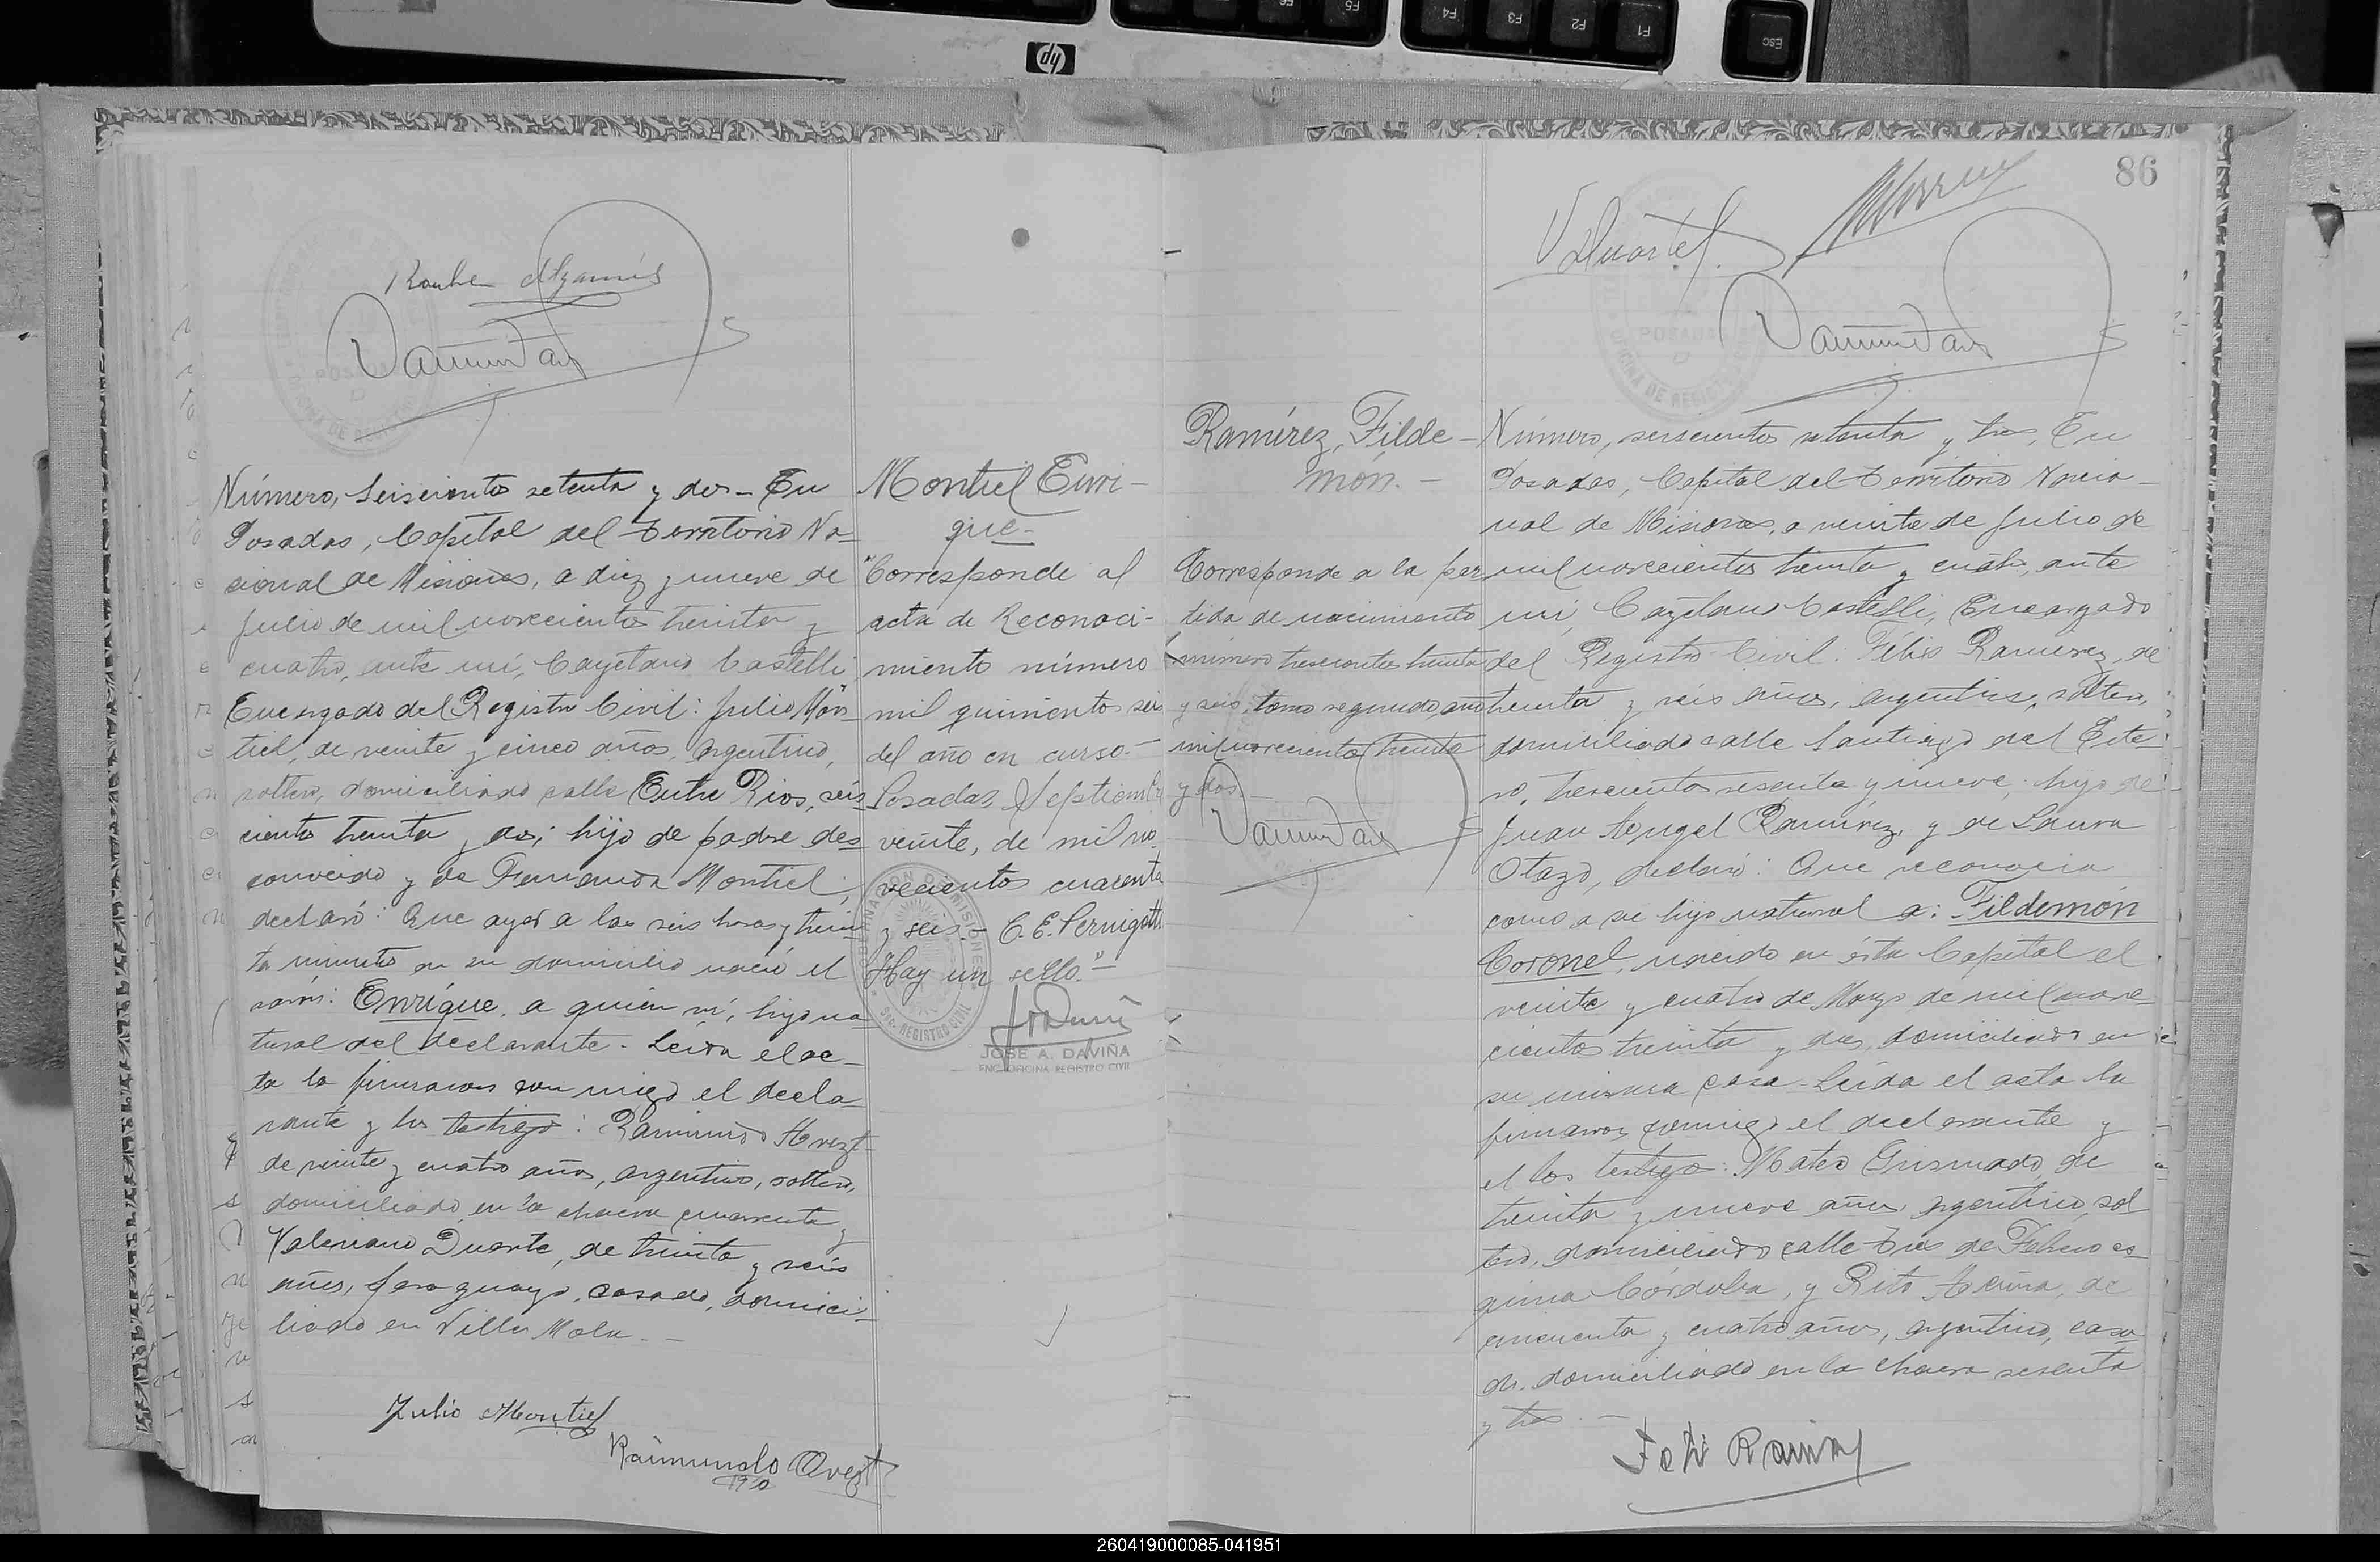 86
Número, seiscientos setenta y dos - En
Posadas, Capital del Territorio Na-
cional de Misiones, a diez y nueve de
Julio de mil novecientos treinta y
cuatro, ante mí, Cayetano Castelli
Encargado del Registro Civil: Julio Mon-
tiel, de veinte y cinco años, argentino,
soltero, domiciliado calle Entre Rios, seis
cientos treinta y dos; hijo de padre des-
conocido y de Fernanda Montiel,
declaró: Que ayer a las seis horas y trein
ta minutos en su domicilio nació el
varón: Enrique, a quien ví, hijo na-
tural del declarante. Leída el ac-
ta la firmaron conmigo el decla-
rante y los testigos: Raimundo
de veinte y cuatro años, argentino, soltero,
domiciliado en la chacra cuarenta y
Valeriano Duarte, de treinta y seis
años, paraguayo, casado, domici-
liado en Villa Mola. -
Julio Montiel
Raimundo
Montiel Enri-
que-
"Corresponde al
acta de Reconoci-
miento número
mil quinientos seis
del año en curso.-
Posadas, Septiembre
veinte, de mil no-
vecientos cuarenta
y seis.- C. E. Pernigotti
Hay un sello."-
JOSE A. DAVIÑA
ENC. OFICINA REGISTRO CIVIL
Ramírez, Filde-
món.-
Corresponde a la par
tida de nacimiento
número trescientos treinta
y seis, tomo segundo, año
mil novecientos treinta
y dos.-
V. Duarte
POSADAS
Número, seiscientos setenta y tres, En
Posadas, Capital del Territorio Nacio-
nal de Misiones, a veinte de Julio de
mil novecientos treinta y cuatro, ante
mí, Cayetano Castelli, Encargado
del Registro Civil: Félix Ramírez, de
treinta y seis años, argentino, soltero,
domiciliado calle Santiago del Este-
ro, trescientos sesenta y nueve, hijo de
Juan Angel Ramírez, y de Laura
Otazo, declaró: Que reconocía
como a su hijo natural a: Fildemón
Coronel, nacido en ésta Capital el
veinte y cuatro de Marzo de mil nove-
cientos treinta y dos, domiciliado en
su misma casa. Leída el acta la
firmaron conmigo el declarante y
el los testigos: Mateo Grismado, de
treinta y nueve años, argentino, sol-
tero, domiciliado calle Tres de Febrero es-
quina Córdoba, y Rito Acuña, de
cincuenta y cuatro años, argentino, casa-
do, domiciliado en la chacra sesenta
y tres. -
hp
Esc
F1
F2
F3
F4
F5
F6
260419000085-041951